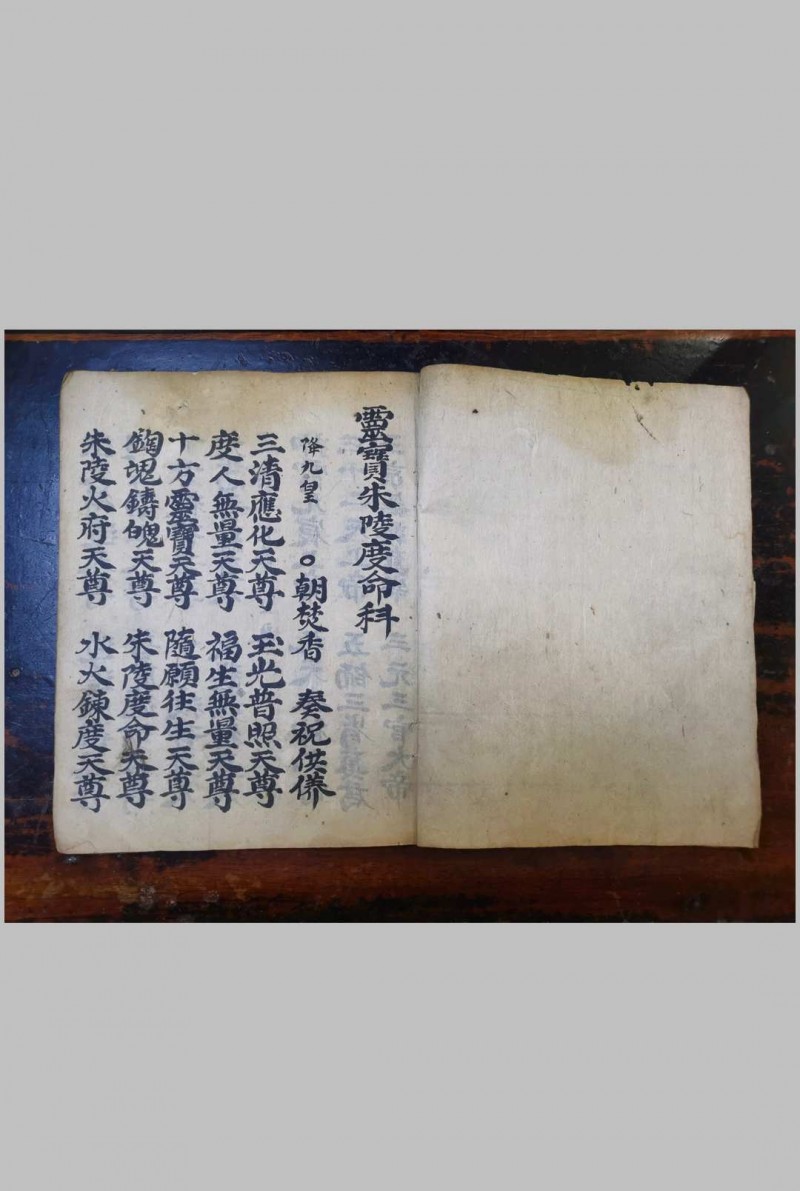 靈寶朱陵度命科
降九皇
○朝焚香 奏祝供養
三清應化天尊 玉光普照天尊
度人無量天尊 福生無量天尊
十方靈寶天尊 隨願往生天尊
魂鑄魄天尊 朱陵度命天尊
朱陵火府天尊 水火鍊度天尊